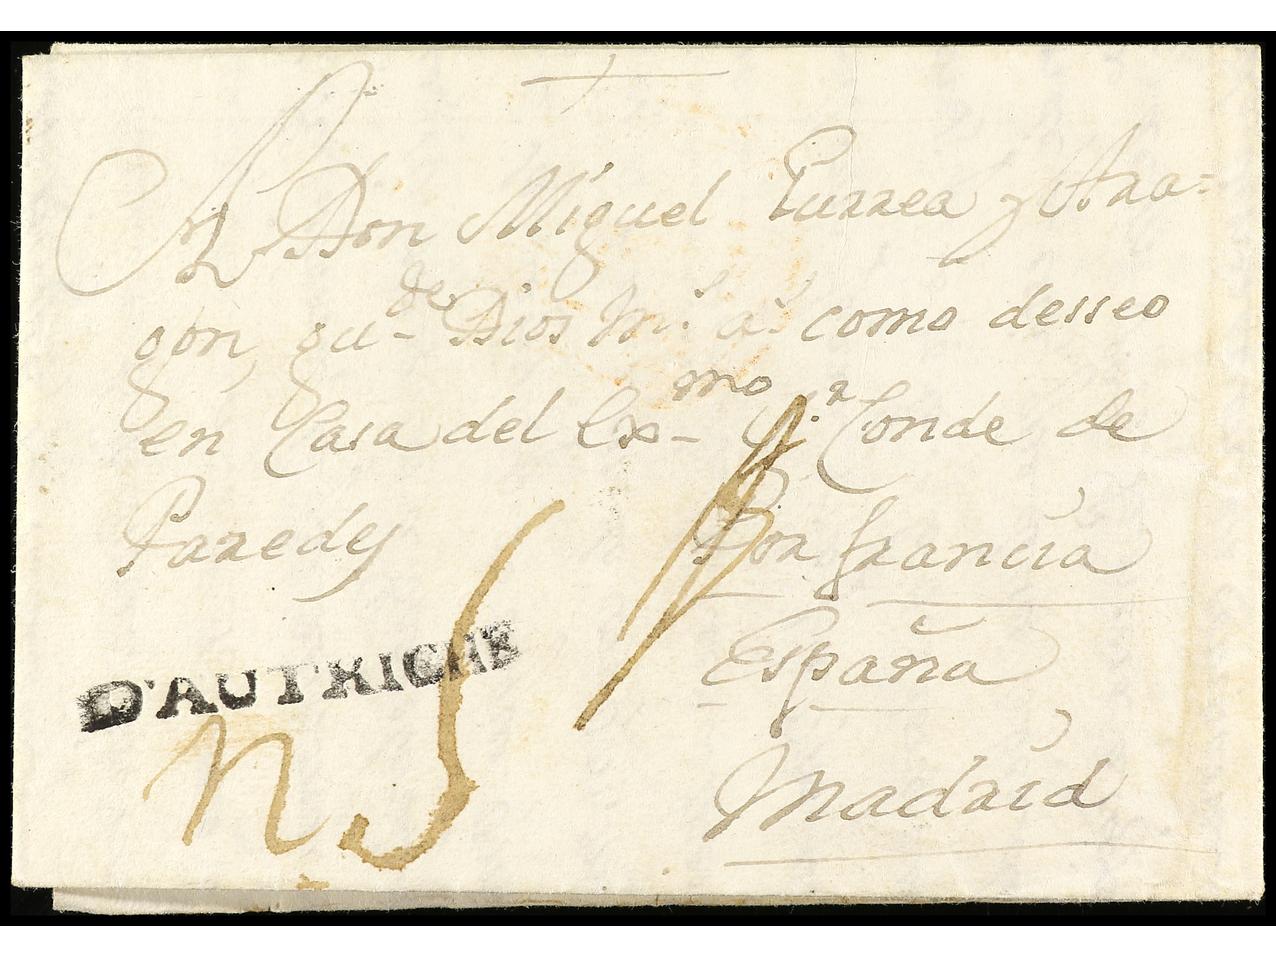 A Don Miguel Gurrea y Ara=
gon, gu-de Dios m.s a.s como desseo
en Casa del Ex-mo S.r Conde de
Paredes
Por francia
España
Madrid
D'AUTRICHE
n 5